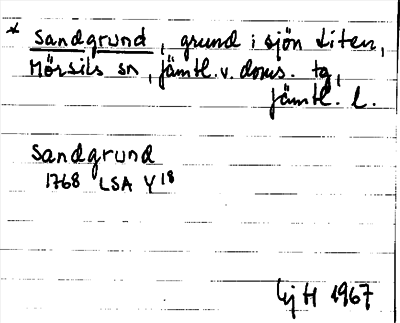 * Sandgrund, grund i sjön Liten,
Mörsils sn, Jämtl. v. doms. tg,
Jämtl. l.
Sandgrund
1768 LSA Y18
1967